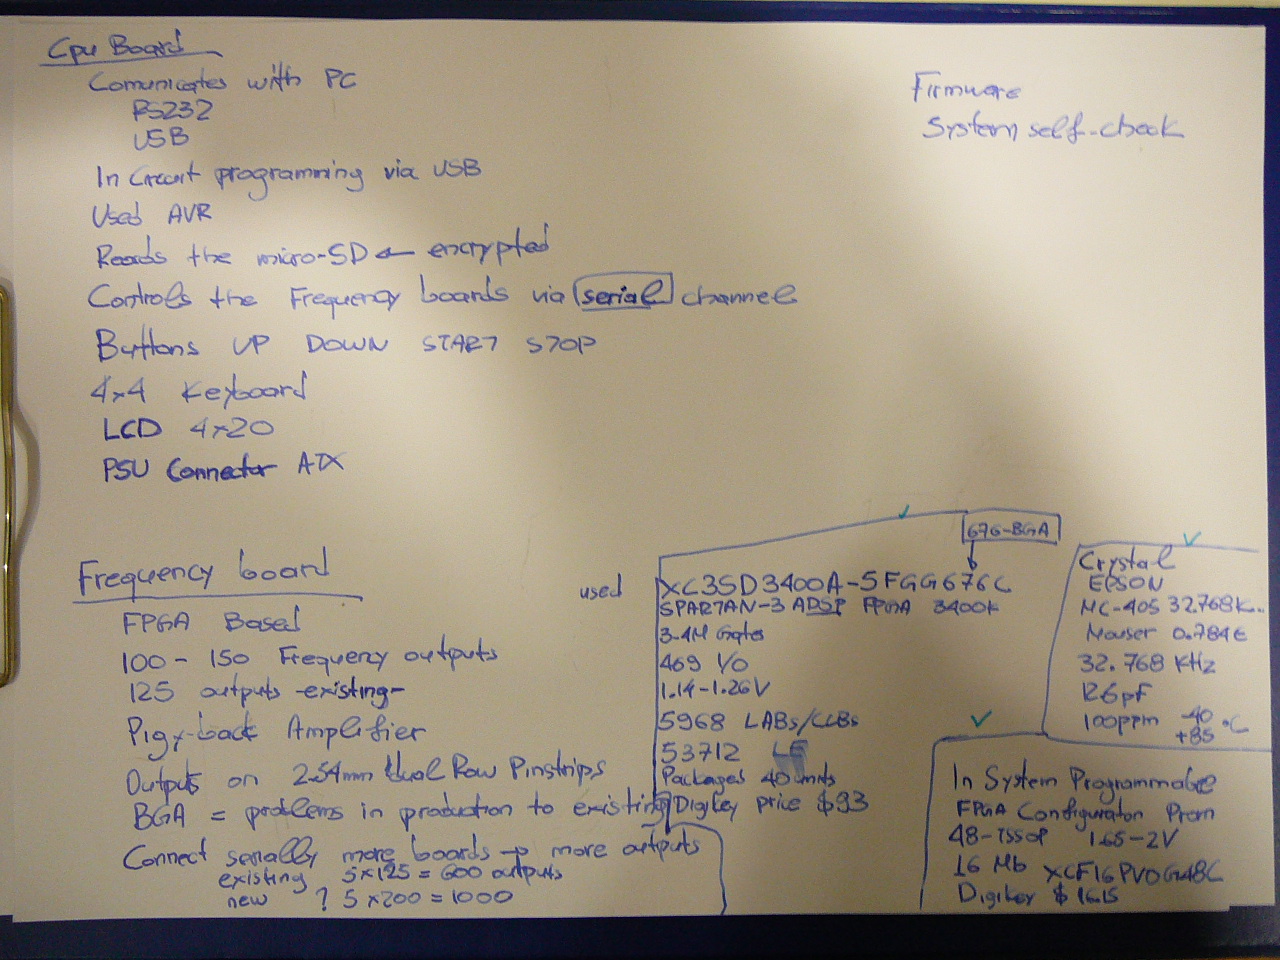 Cpu Board
Comunicates with PC
RS232
USB
In Circuit programming via USB
Used AVR
Reads the micro-SD ← encrypted
Controls the Frequency boards via serial channel
Buttons UP DOWN START STOP
4x4 Keyboard
LCD 4x20
PSU Connector ATX
Firmware
System self-check
Frequency board
FPGA Based
100 - 150 Frequency outputs
125 outputs -existing-
Pigy-back Amplifier
Outputs on 2.54mm dual Row Pinstrips
BGA = problems in production to existing
Connect serially more boards → more outputs
existing 5x125 = 600 outputs
new ? 5x200 = 1000
676-BGA
used XC3SD3400A-5FGG676C
SPARTAN-3 ADSP FPGA 3400K
3.4M Gates
469 I/O
1.14-1.26V
5968 LABs/CLBs
53712 LE
Packages 40 units
Digikey price $93
Crystal
EPSON
MC-405 32.768K..
Mouser 0.784€
32.768 KHz
12.5pF
100ppm -40 +85 °C
In System Programmable
FPGA Configuration Prom
48-TSSOP 1.65-2V
16 Mb XCF16PVOG48C
Digikey $16.15